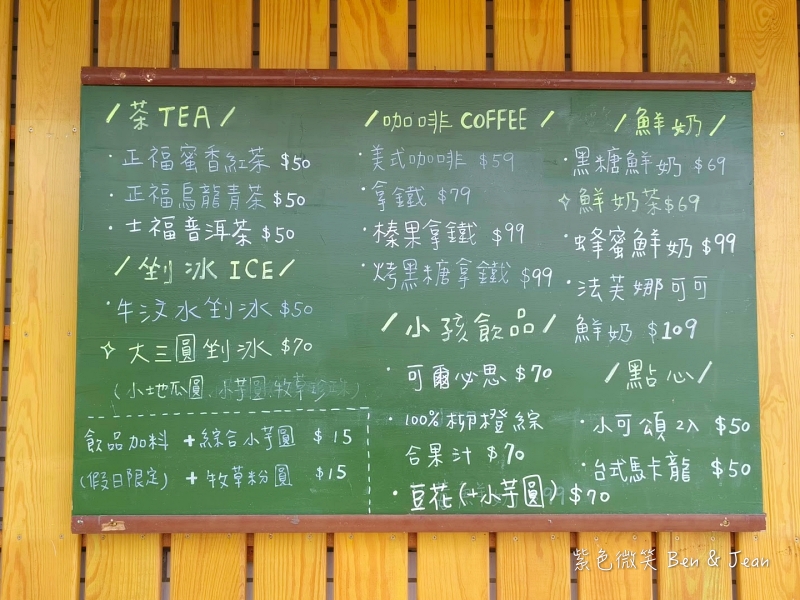 /茶 TEA/
·正福蜜香紅茶 $50
·正福烏龍青茶 $50
·士福普洱茶 $50
/剉冰 ICE/
·牛汶水剉冰 $50
✧大三圓剉冰 $70
(小地瓜圓.小芋圓.牧草珍珠)
飲品加料 +綜合小芋圓 $15
(假日限定) +牧草粉圓 $15
/咖啡 COFFEE/
·美式咖啡 $59
·拿鐵 $79
·榛果拿鐵 $99
·烤黑糖拿鐵 $99
/小孩飲品/
·可爾必思 $70
·100%柳橙綜
合果汁 $70
·豆花(+小芋圓) $70
/鮮奶/
·黑糖鮮奶 $69
✧鮮奶茶$69
·蜂蜜鮮奶 $99
·法芙娜可可
鮮奶 $109
/點心/
·小可頌 2入 $50
·台式馬卡龍 $50
紫色微笑 Ben & Jean